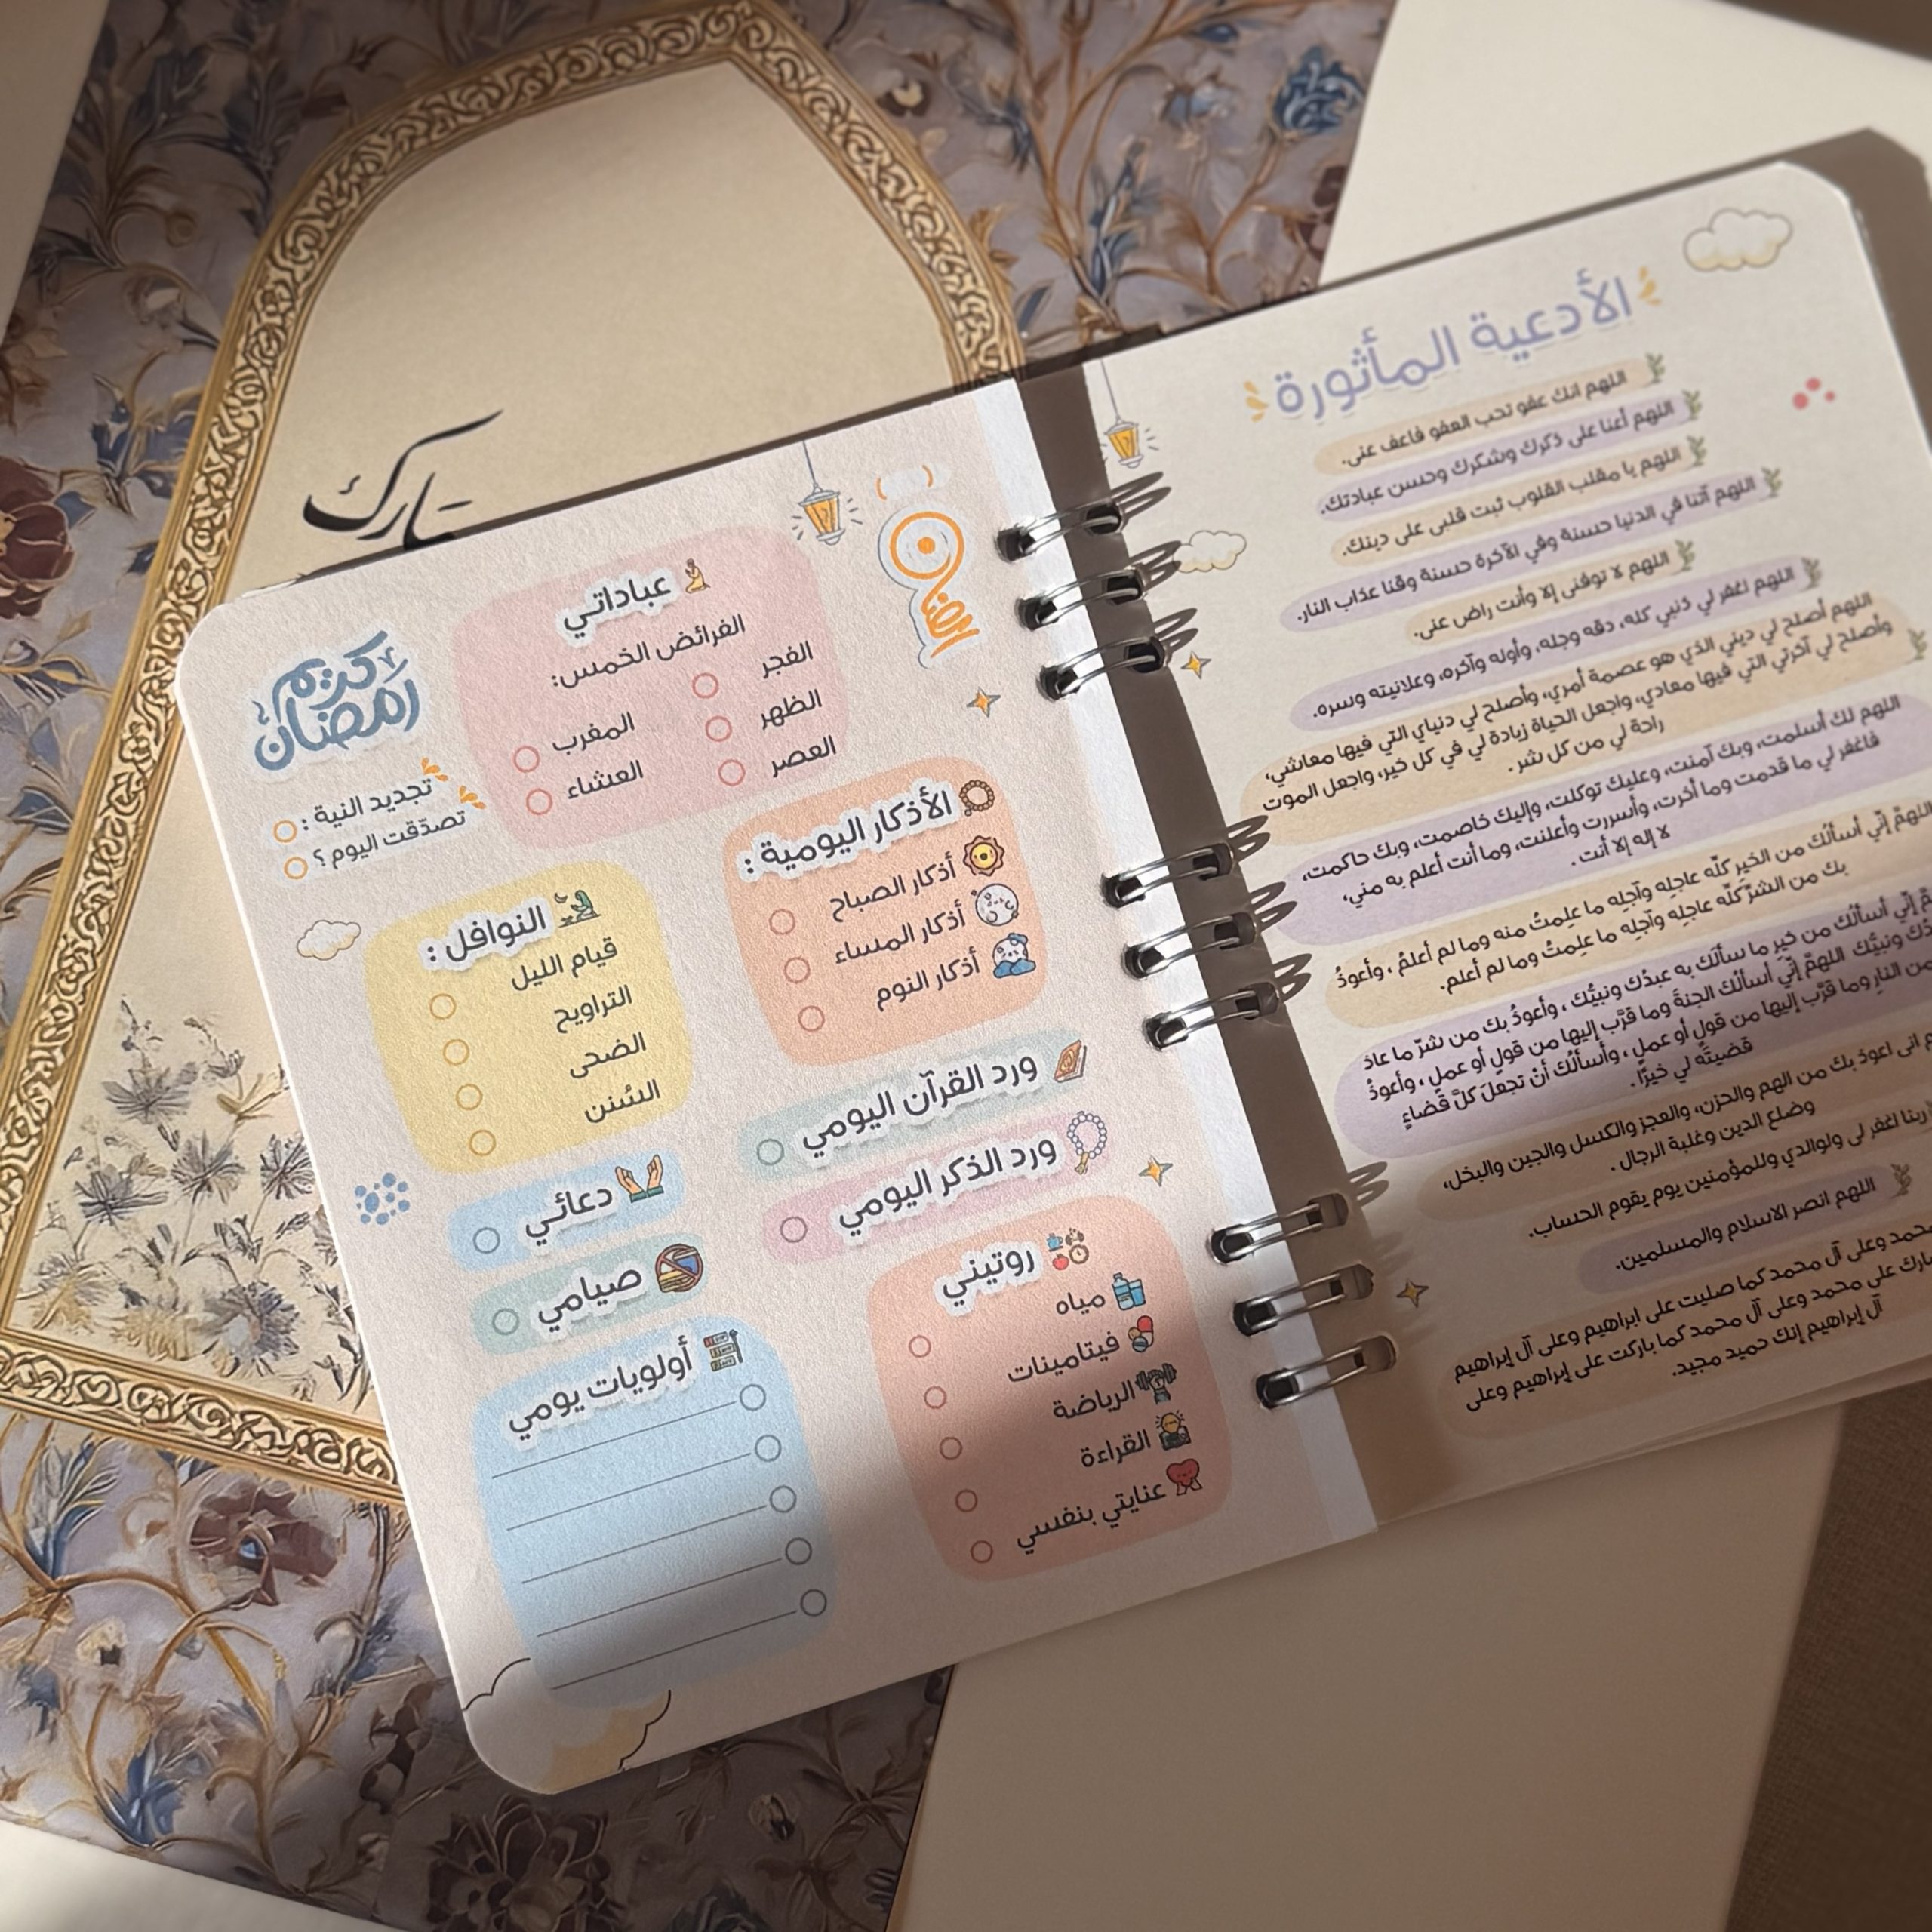 تبارك
الأدعية المأثورة
اللهم انك عفو تحب العفو فاعف عنى.
اللهم أعنا على ذكرك وشكرك وحسن عبادتك.
اللهم يا مقلب القلوب ثبت قلبى على دينك.
اللهم آتنا في الدنيا حسنة وفي الآخرة حسنة وقنا عذاب النار.
اللهم لا توفنى إلا وأنت راض عنى.
اللهم اغفر لي ذنبي كله، دقه وجله، وأوله وآخره، وعلانيته وسره.
اللهم أصلح لي ديني الذي هو عصمة أمري، وأصلح لي دنياي التي فيها معاشي،
وأصلح لي آخرتي التي فيها معادي، واجعل الحياة زيادة لي في كل خير، واجعل الموت
راحة لي من كل شر.
اللهم لك أسلمت، وبك آمنت، وعليك توكلت، وإليك خاصمت، وبك حاكمت،
فاغفر لي ما قدمت وما أخرت، وأسررت وأعلنت، وما أنت أعلم به مني،
لا إله إلا أنت.
اللهمَّ إنِّي أسألُك من الخيرِ كلِّه عاجلِه وآجلِه ما علِمتُ منه وما لم أعلمُ، وأعوذُ
بك من الشرِّ كلِّه عاجلِه وآجلِه ما علِمتُ وما لم أعلم.
إنِّي أسألُك من خيرِ ما سألَك به عبدُك ونبيُّك، وأعوذُ بك من شرِّ ما عاذ
ونبيُّك اللهمَّ إنِّي أسألُك الجنةَ وما قرَّب إليها من قولٍ أو عملٍ، وأعوذُ
من النارِ وما قرَّب إليها من قولٍ أو عملٍ، وأسألُك أنْ تجعلَ كلَّ قضاءٍ
قضيتَه لي خيرًا.
انى اعوذ بك من الهم والحزن، والعجز والكسل والجبن والبخل،
وضلع الدين وغلبة الرجال.
ربنا اغفر لى ولوالدي وللمؤمنين يوم يقوم الحساب.
اللهم انصر الاسلام والمسلمين.
محمد وعلى آل محمد كما صليت على ابراهيم وعلى آل إبراهيم
بارك على محمد وعلى آل محمد كما باركت على إبراهيم وعلى
آل إبراهيم إنك حميد مجيد.
رمضان
عباداتي
الفرائض الخمس:
الفجر
الظهر
العصر
المغرب
العشاء
رمضان كريم
تجديد النية :
تصدّقت اليوم ؟
الأذكار اليومية :
أذكار الصباح
أذكار المساء
أذكار النوم
النوافل :
قيام الليل
التراويح
الضحى
السُنن
ورد القرآن اليومي
ورد الذكر اليومي
دعائي
صيامي
روتيني
مياه
فيتامينات
الرياضة
القراءة
عنايتي بنفسي
أولويات يومي